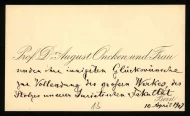 Prof. Dr. August Oncken und Frau
senden ihre innigsten Glückwünsche
zur Vollendung des großen Werkes, des
Stolzes unserer Juristischen Fakultät
Bern
13
10. April 1907